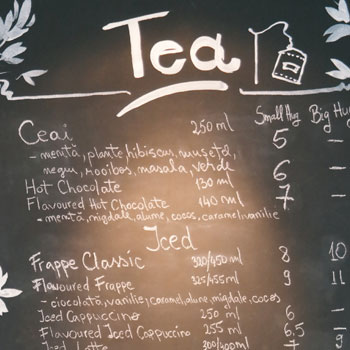 Tea
Small Hug Big Hug
Ceai 250 ml 5 –
- mentă, plante, hibiscus, mușețel,
negru, rooibos, masala, verde
Hot Chocolate 130 ml 6 –
Flavoured Hot Chocolate 140 ml 7 –
- mentă, migdale, alune, cocos, caramel, vanilie
Iced
Frappe Classic 320/450 ml 8 10
Flavoured Frappe 325/455 ml 9 11
- ciocolată, vanilie, caramel, alune, migdale, cocos
Iced Cappuccino 250 ml 6 –
Flavoured Iced Cappuccino 255 ml 6.5 –
Iced Latte 300/400 ml 7